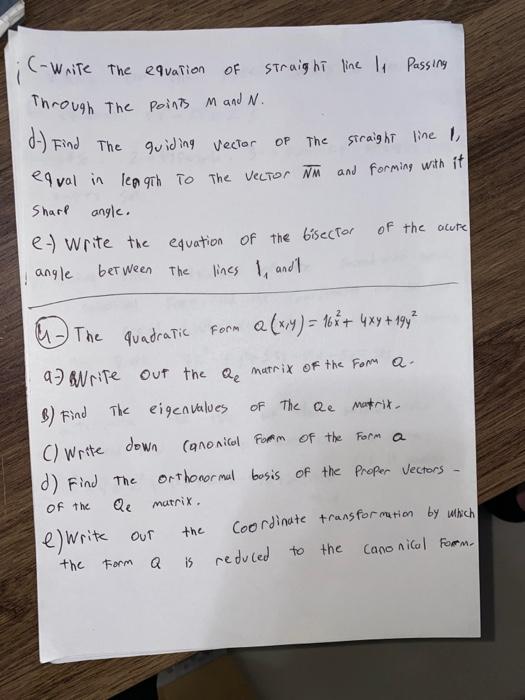 C-Write The equation of straight line l₁ Passing
Through The Points M and N.
d-) Find The guiding vector of The straight line l,
equal in length To The vector NM and forming with it
sharp angle.
e-) Write the equation of the bisector of the acute
angle between The lines l₁ and l
4-) The quadratic Form Q(x,y) = 16x²+ 4xy + 19y²
a-) Write out the Qe matrix of the Form Q.
B) Find The eigenvalues of The Qe matrix.
C) Write down Canonical Form of the Form Q
d) Find The orthonormal basis of the Proper Vectors -
of the Qe matrix.
e) Write out the Coordinate transformation by which
the Form Q is reduced to the Canonical Form.